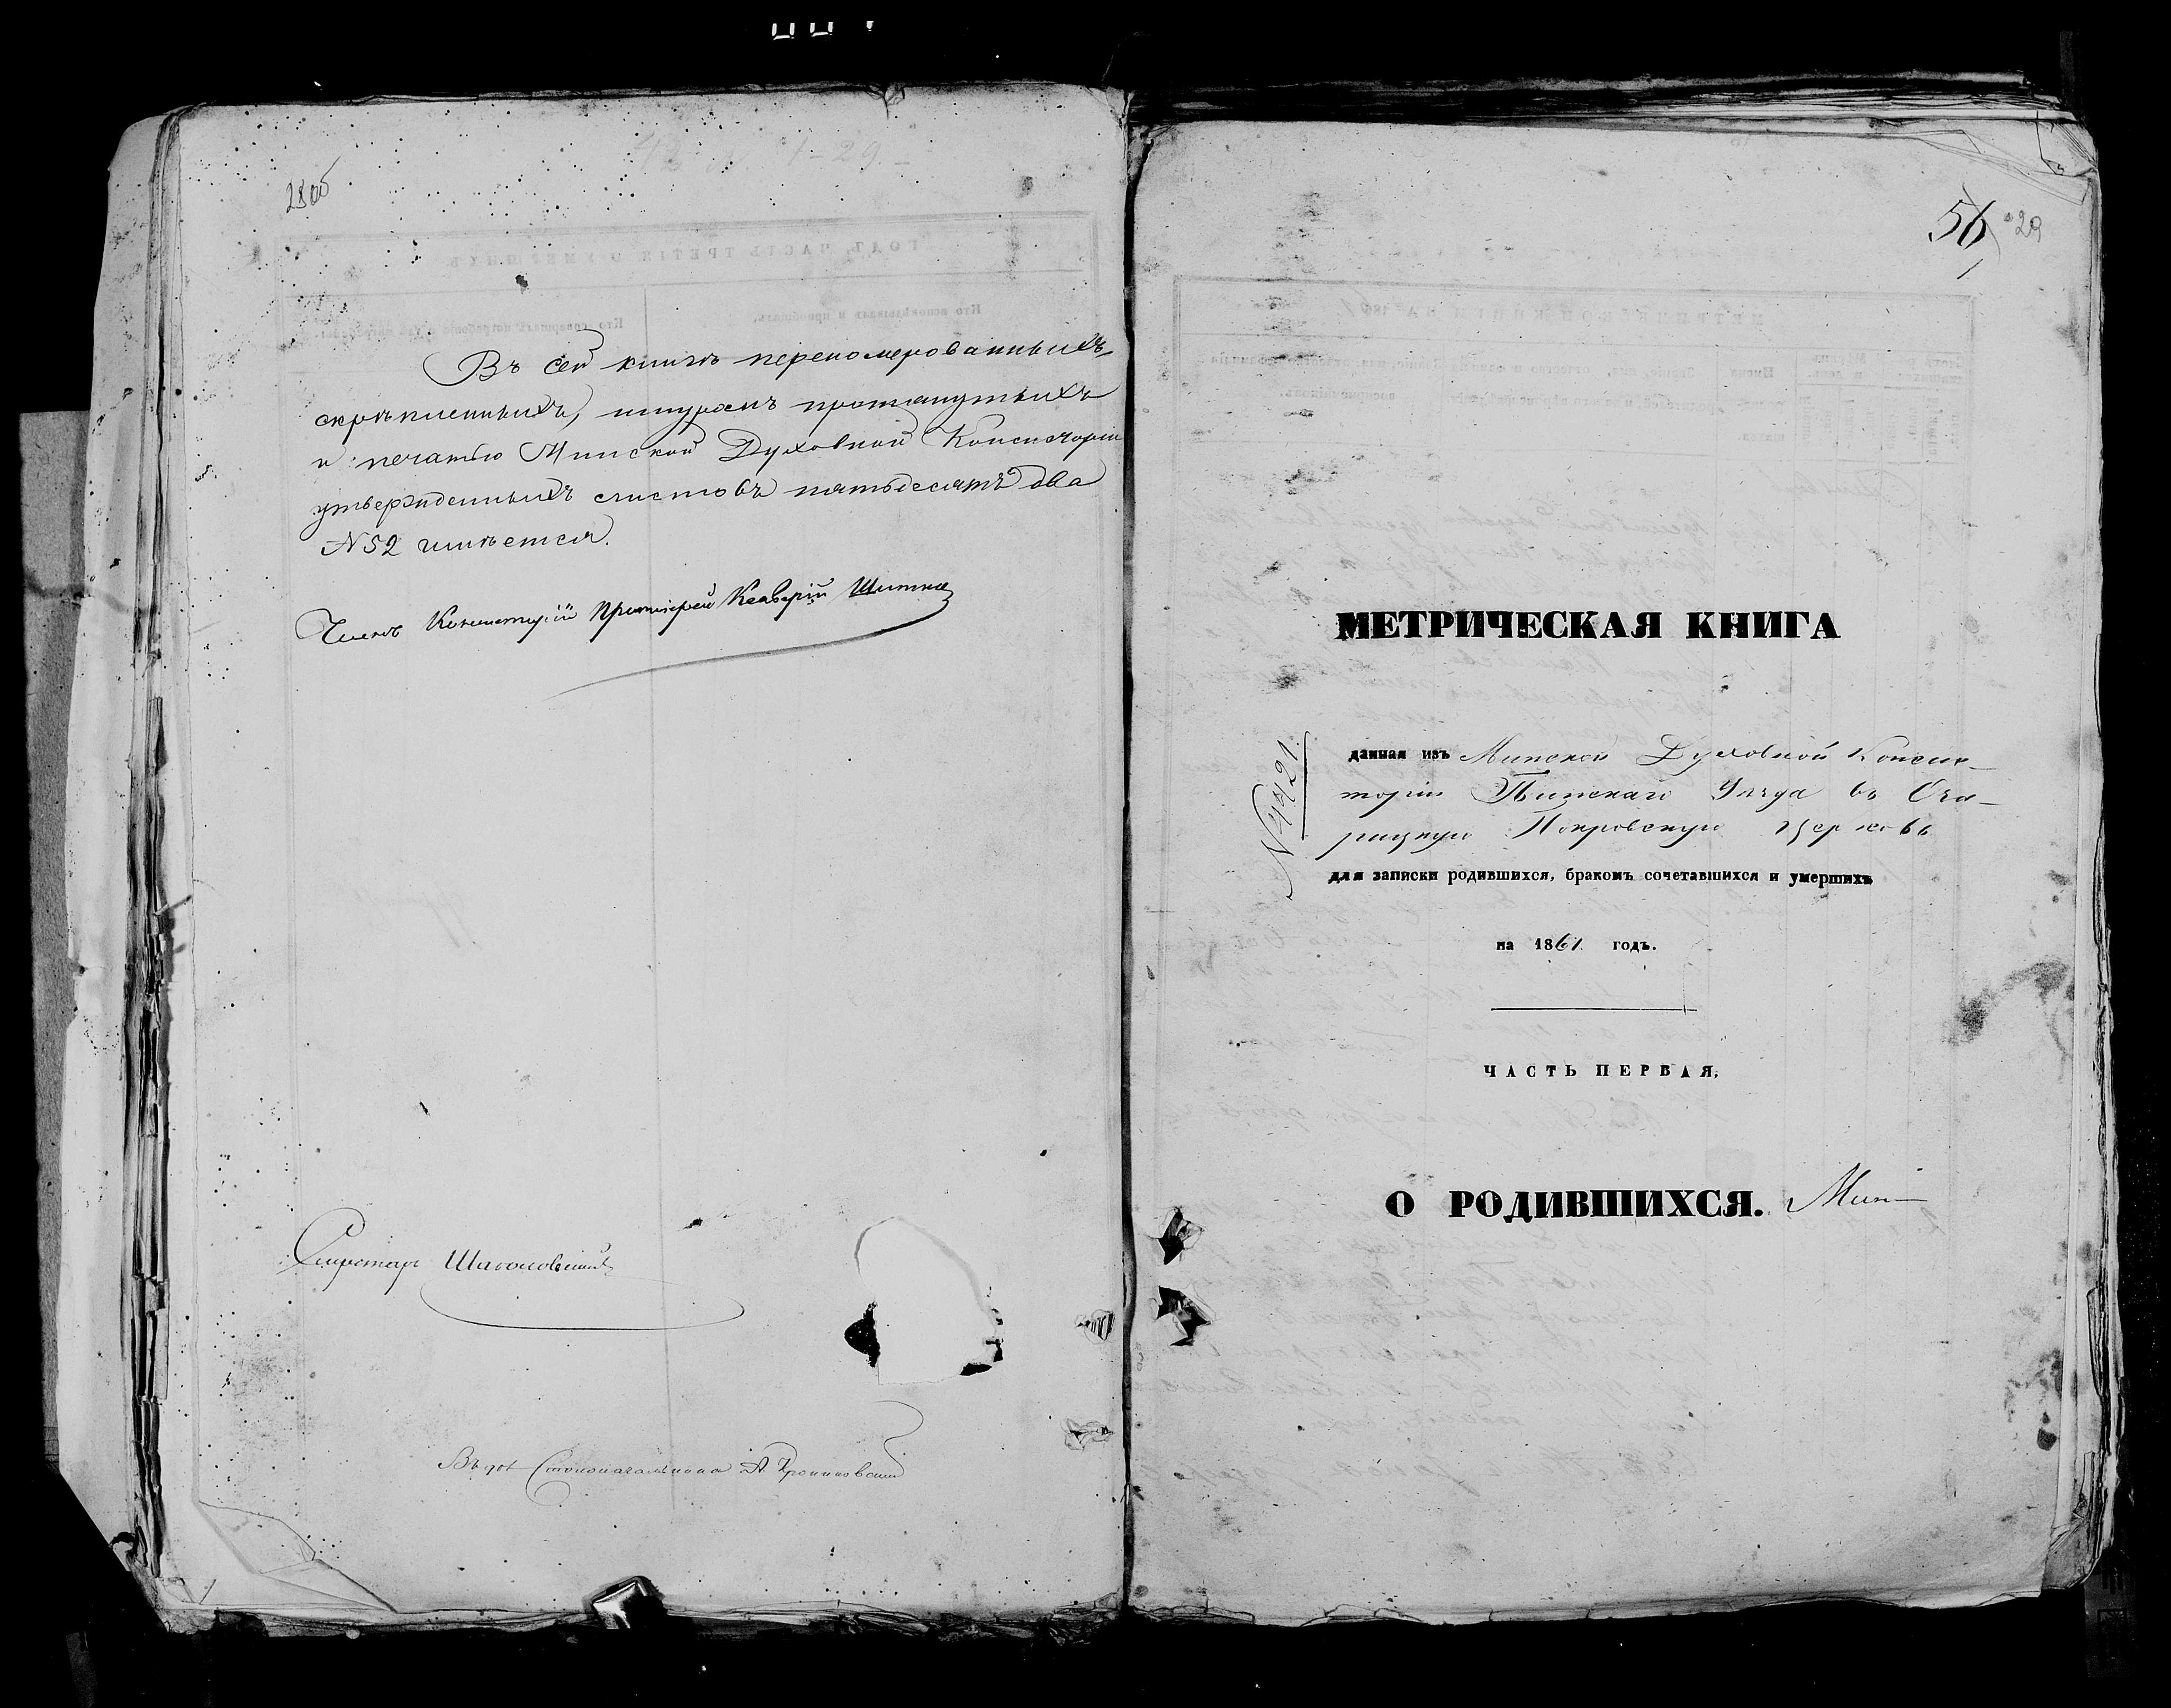 28об
Въ сей книгѣ переномерованныхъ,
скрѣпленныхъ, шнуромъ протянутыхъ
и печатью Минской Духовной Консисторіи
утвержденныхъ листовъ пятьдесятъ два
N 52 имѣется.
Членъ Консисторіи Протоіерей Ксаверій
Секретарь
Столоначальника А.
56 29
1
МЕТРИЧЕСКАЯ КНИГА
N 4421.
данная изъ Минской Духовной Консис-
торіи Пинскаго Уѣзда въ Ога-
рицкую Покровскую Церковь
для записки родившихся, бракомъ сочетавшихся и умершихъ
на 1861 годъ.
ЧАСТЬ ПЕРВАЯ,
О РОДИВШИХСЯ. Мин-